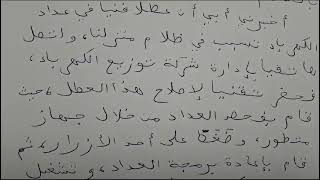 أخبرني أبي أن عطلا فنيا في عداد
الكهرباء تسبب في ظلام منزلنا، واتصل
هاتفيا بإدارة شركة توزيع الكهرباء،
فحضر تقنيا لإصلاح هذا العطل، حيث
قام بفحص العداد من خلال جهاز
متطور، وضغط على أحد الأزرار، ثم
قام بإعادة برمجة العداد، وتشغيل